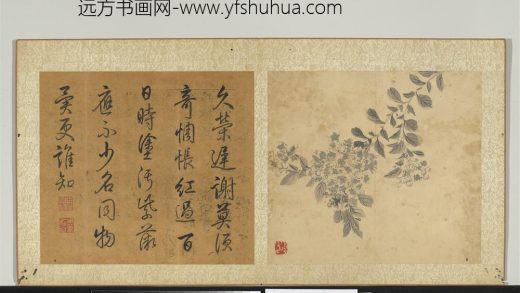 远方书画网-www.yfshuhua.com
久榮遲謝莫須
奇惆悵紅過百
日時塗污紫薇
應不少名同物
異更誰知